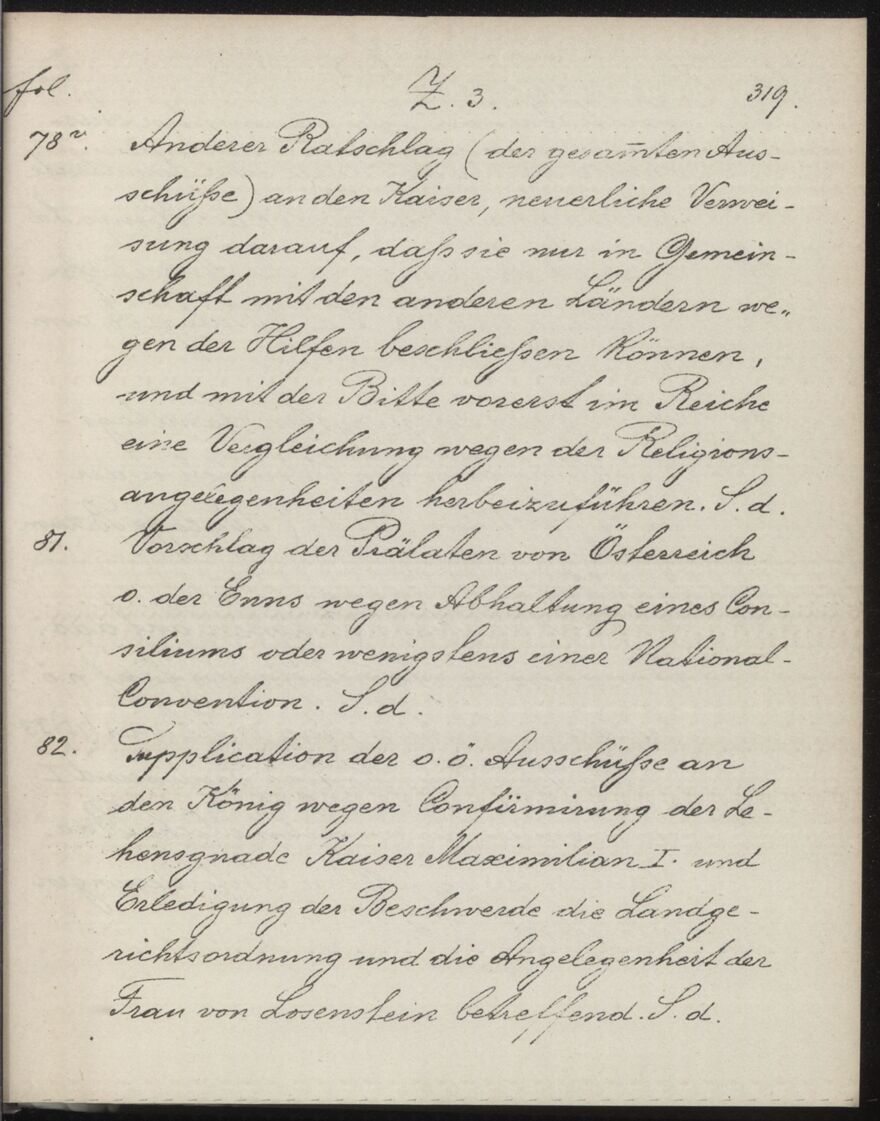 fol. Z. 3. 319.
78v. Anderer Ratschlag (der gesam̅ten Aus-
schüsse) an den Kaiser, neuerliche Verwei-
sung darauf, dass sie nur in Gemein-
schaft mit den anderen Ländern we„
gen der Hilfen beschliessen können,
und mit der Bitte vorerst im Reiche
eine Vergleichung wegen der Religions-
angelegenheiten herbeizuführen. S. d.
81. Vorschlag der Prälaten von Österreich
o. der Enns wegen Abhaltung eines Con-
siliums oder wenigstens einer National-
Convention. S. d.
82. Supplication der o. ö. Ausschüsse an
den König wegen Confirmirung der Le-
hensgnade Kaiser Maximilian I. und
Erledigung der Beschwerde die Landge-
richtsordnung und die Angelegenheit der
Frau von Losenstein betreffend. S. d.